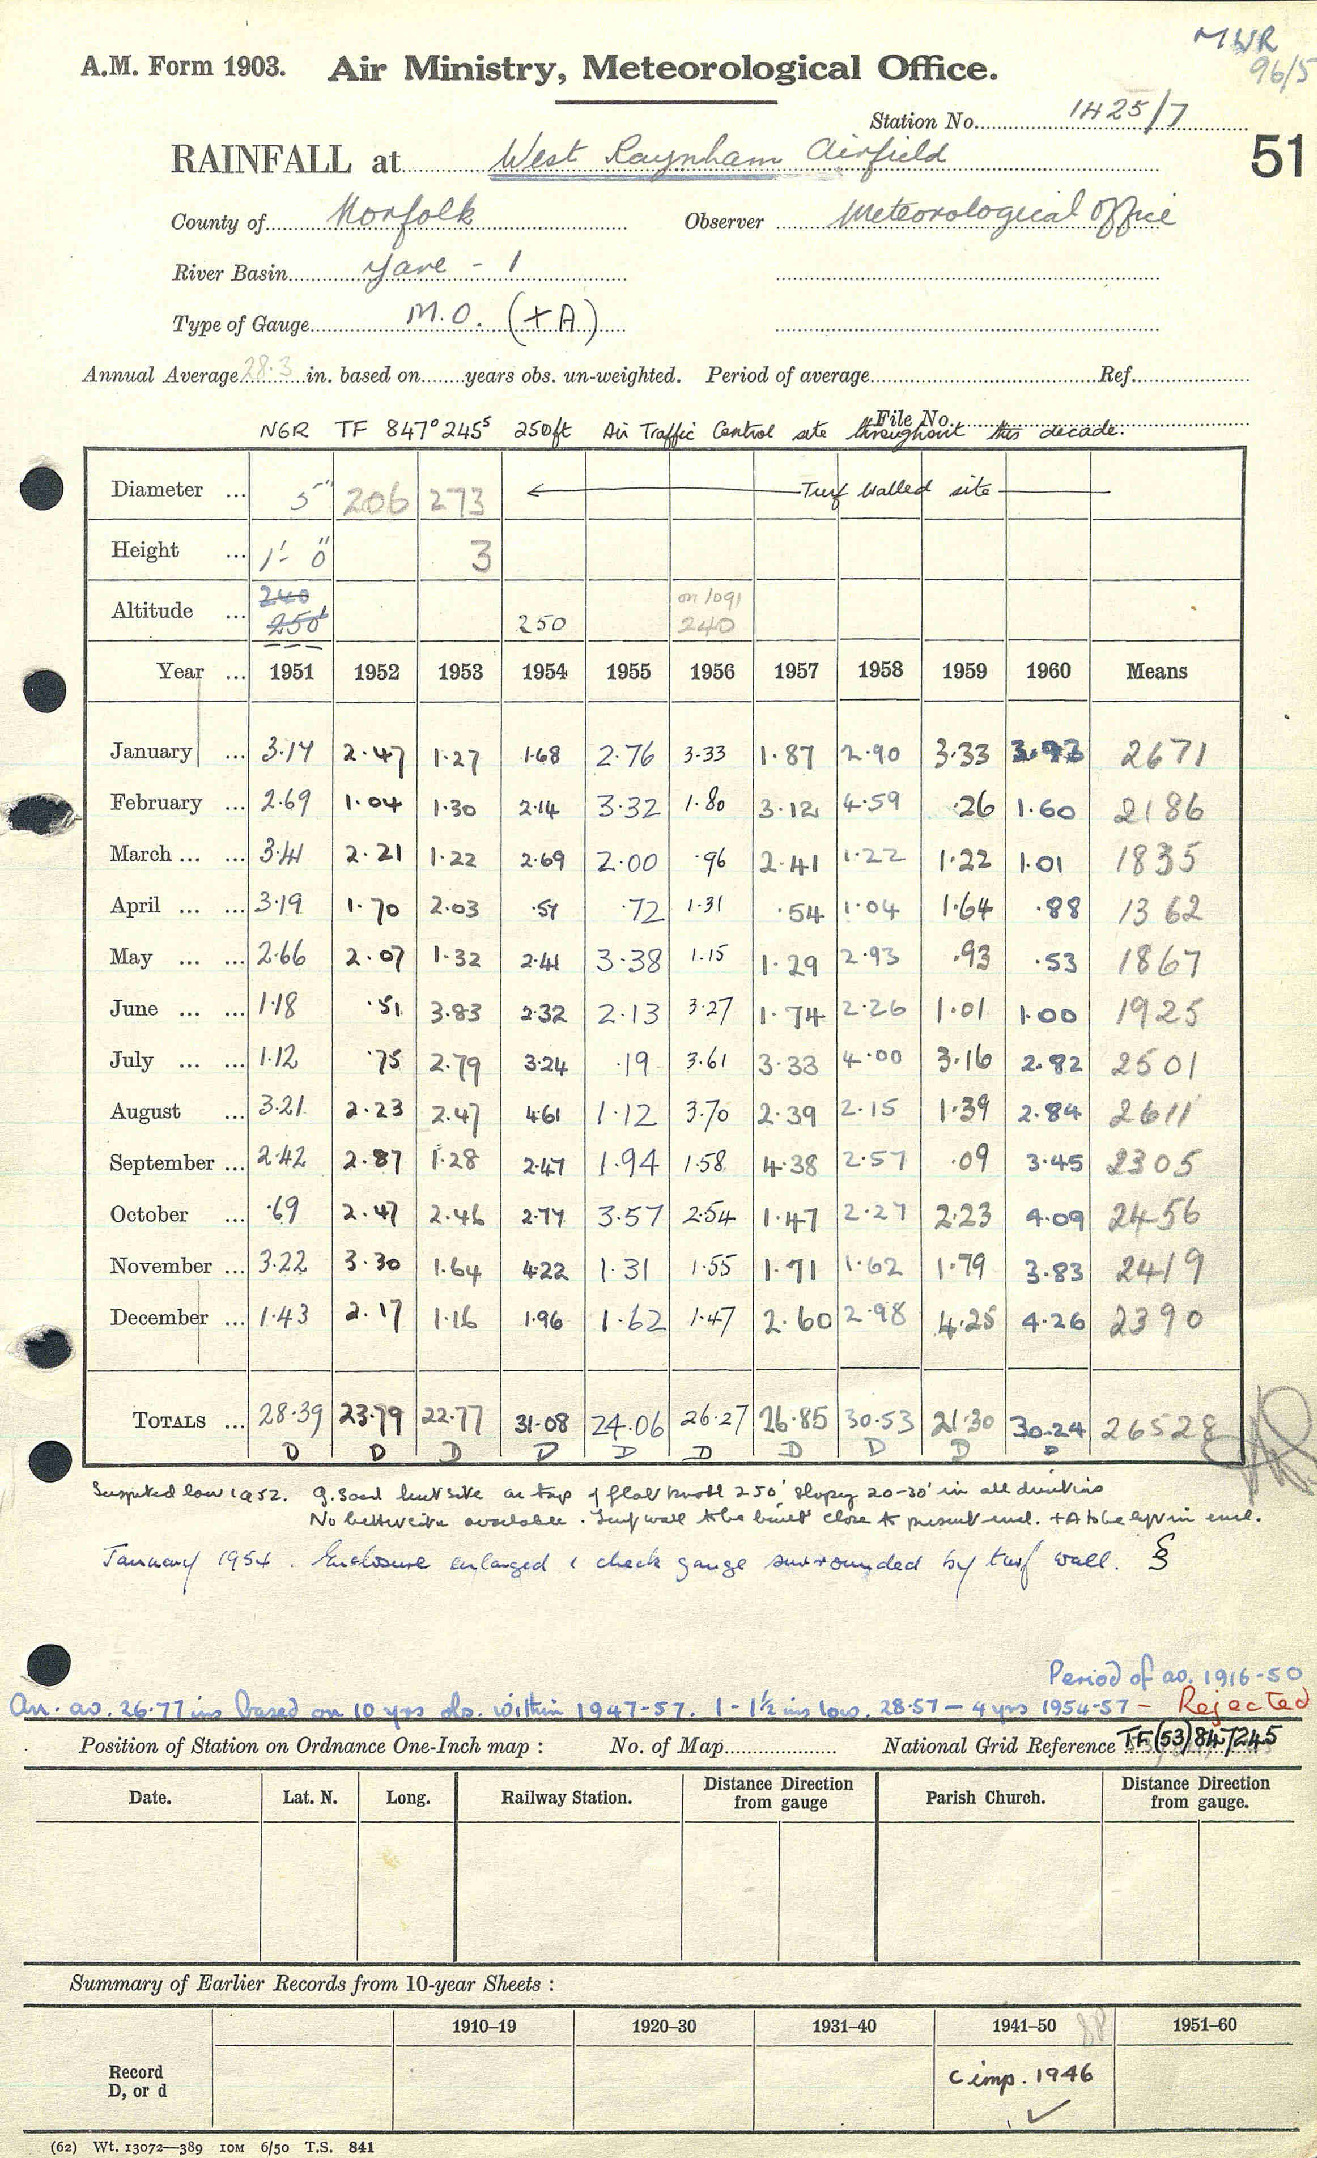 MWR
96/5
A.M. Form 1903. Air Ministry, Meteorological Office.
Station No. 1425/7
RAINFALL at West Raynham Airfield
51
County of Norfolk Observer Meteorological Office
River Basin Yare - 1
Type of Gauge M.O. (+A)
Annual Average 28.3 in. based on years obs. un-weighted. Period of average Ref.
File No.
NGR TF 847⁰ 245⁵ 250ft Air Traffic Control site throughout this decade.
Diameter ... 5" 206 273 ← Turf Walled site →
Height ... 1'- 0" 3
Altitude ... 240 250' 250 on 1091 240
Year ... 1951 1952 1953 1954 1955 1956 1957 1958 1959 1960 Means
January ... 3.17 2.47 1.27 1.68 2.76 3.33 1.87 2.90 3.33 3.93 2671
February ... 2.69 1.04 1.30 2.14 3.32 1.80 3.12 4.59 .26 1.60 2186
March ... ... 3.41 2.21 1.22 2.69 2.00 .96 2.41 1.22 1.22 1.01 1835
April ... ... 3.19 1.70 2.03 .57 .72 1.31 .54 1.04 1.64 .88 1362
May ... ... 2.66 2.07 1.32 2.41 3.38 1.15 1.29 2.93 .93 .53 1867
June ... ... 1.18 .51 3.83 2.32 2.13 3.27 1.74 2.26 1.01 1.00 1925
July ... ... 1.12 .75 2.79 3.24 .19 3.61 3.33 4.00 3.16 2.82 2501
August ... 3.21 2.23 2.47 4.61 1.12 3.70 2.39 2.15 1.39 2.84 2611
September ... 2.42 2.87 1.28 2.47 1.94 1.58 4.38 2.57 .09 3.45 2305
October ... .69 2.47 2.46 2.77 3.57 2.54 1.47 2.27 2.23 4.09 2456
November ... 3.22 3.30 1.64 4.22 1.31 1.55 1.71 1.62 1.79 3.83 2419
December ... 1.43 2.17 1.16 1.96 1.62 1.47 2.60 2.98 4.25 4.26 2390
TOTALS ... 28.39 23.79 22.77 31.08 24.06 26.27 26.85 30.53 21.30 30.24 26528
D D D D D D D D D D
Suspected low 1952. G. Soed but site on top of flat knoll 250' sloping 20-30' in all directions
No better site available. Turf wall to be built close to present encl. +A to be kept in encl.
January 1954. Enclosure enlarged & check gauge surrounded by turf wall. §
Period of av. 1916-50
An. av. 26.77 ins based on 10 yrs obs. within 1947-57. 1 - 1½ ins low. 28.57 - 4 yrs 1954-57 - Rejected
Position of Station on Ordnance One-Inch map : No. of Map National Grid Reference TF(53)847245
Date. Lat. N. Long. Railway Station. Distance Direction from gauge Parish Church. Distance Direction from gauge.
Summary of Earlier Records from 10-year Sheets :
1910–19 1920–30 1931–40 1941–50 1951–60
Record
D, or d
C imp. 1946
✓
(62) Wt. 13072—389 10M 6/50 T.S. 841